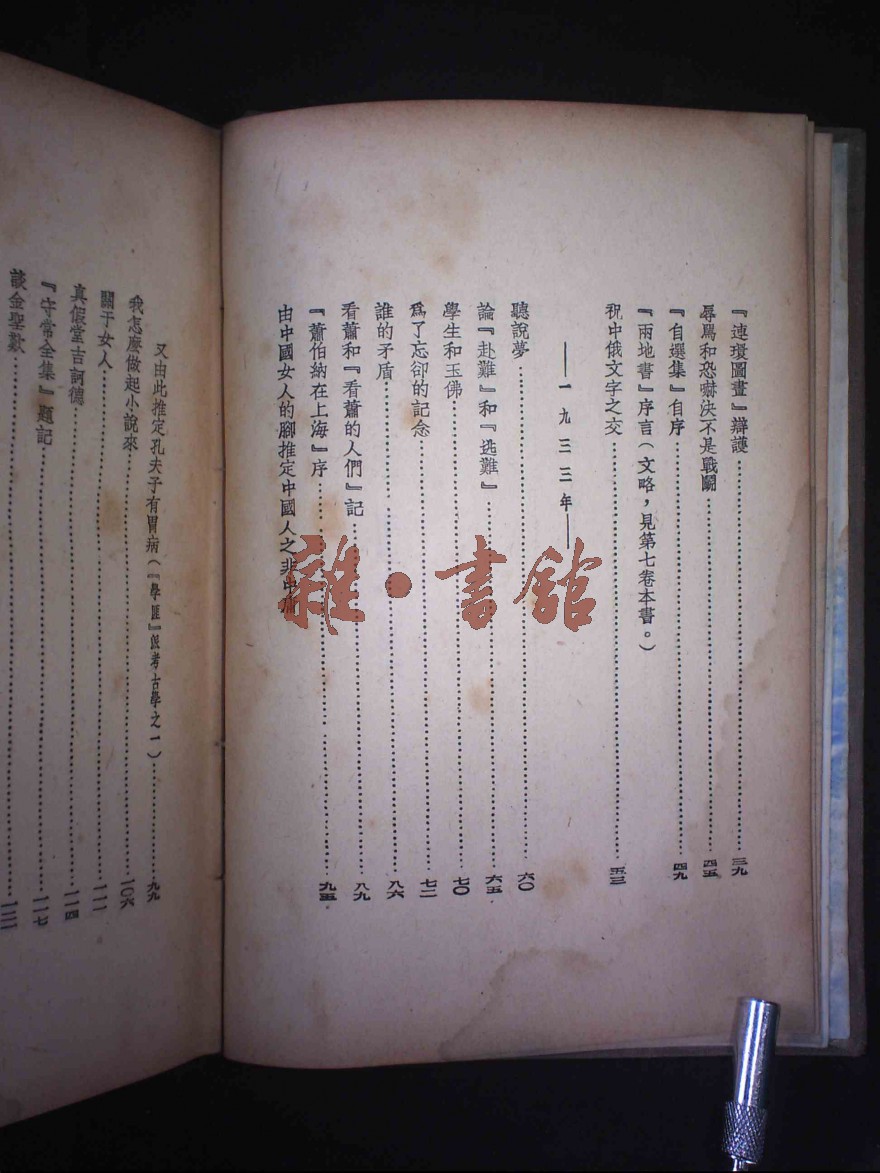 『連環圖畫』辯護……三九
辱罵和恐嚇決不是戰鬭……四五
『自選集』自序……四九
『兩地書』序言(文略,見第七卷本書。)
祝中俄文字之交……五三
——一九三三年——
聽說夢……六〇
論『赴難』和『逃難』……六五
學生和玉佛……七〇
爲了忘卻的記念……七二
誰的矛盾……八六
看蕭和『看蕭的人們』記……八九
『蕭伯納在上海』序……九五
由中國女人的腳推定中國人之非中庸
又由此推定孔夫子有胃病(『學匪』派考古學之一)……九九
我怎麽做起小說來……一〇六
關于女人……一一一
真假堂吉訶德……一一四
『守常全集』題記……一一七
談金聖歎……一二一
雜·書館